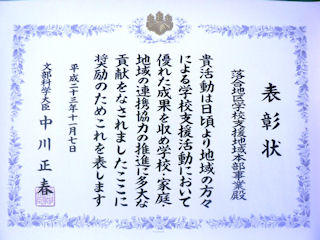 表彰状
落合地区学校支援地域本部事業殿
貴活動は日頃より地域の方々
による学校支援活動において
優れた成果を収め学校・家庭・
地域の連携協力の推進に多大な
貢献をなされましたここに
奨励のためこれを表します
平成二十三年十一月七日
文部科学大臣 中川正春